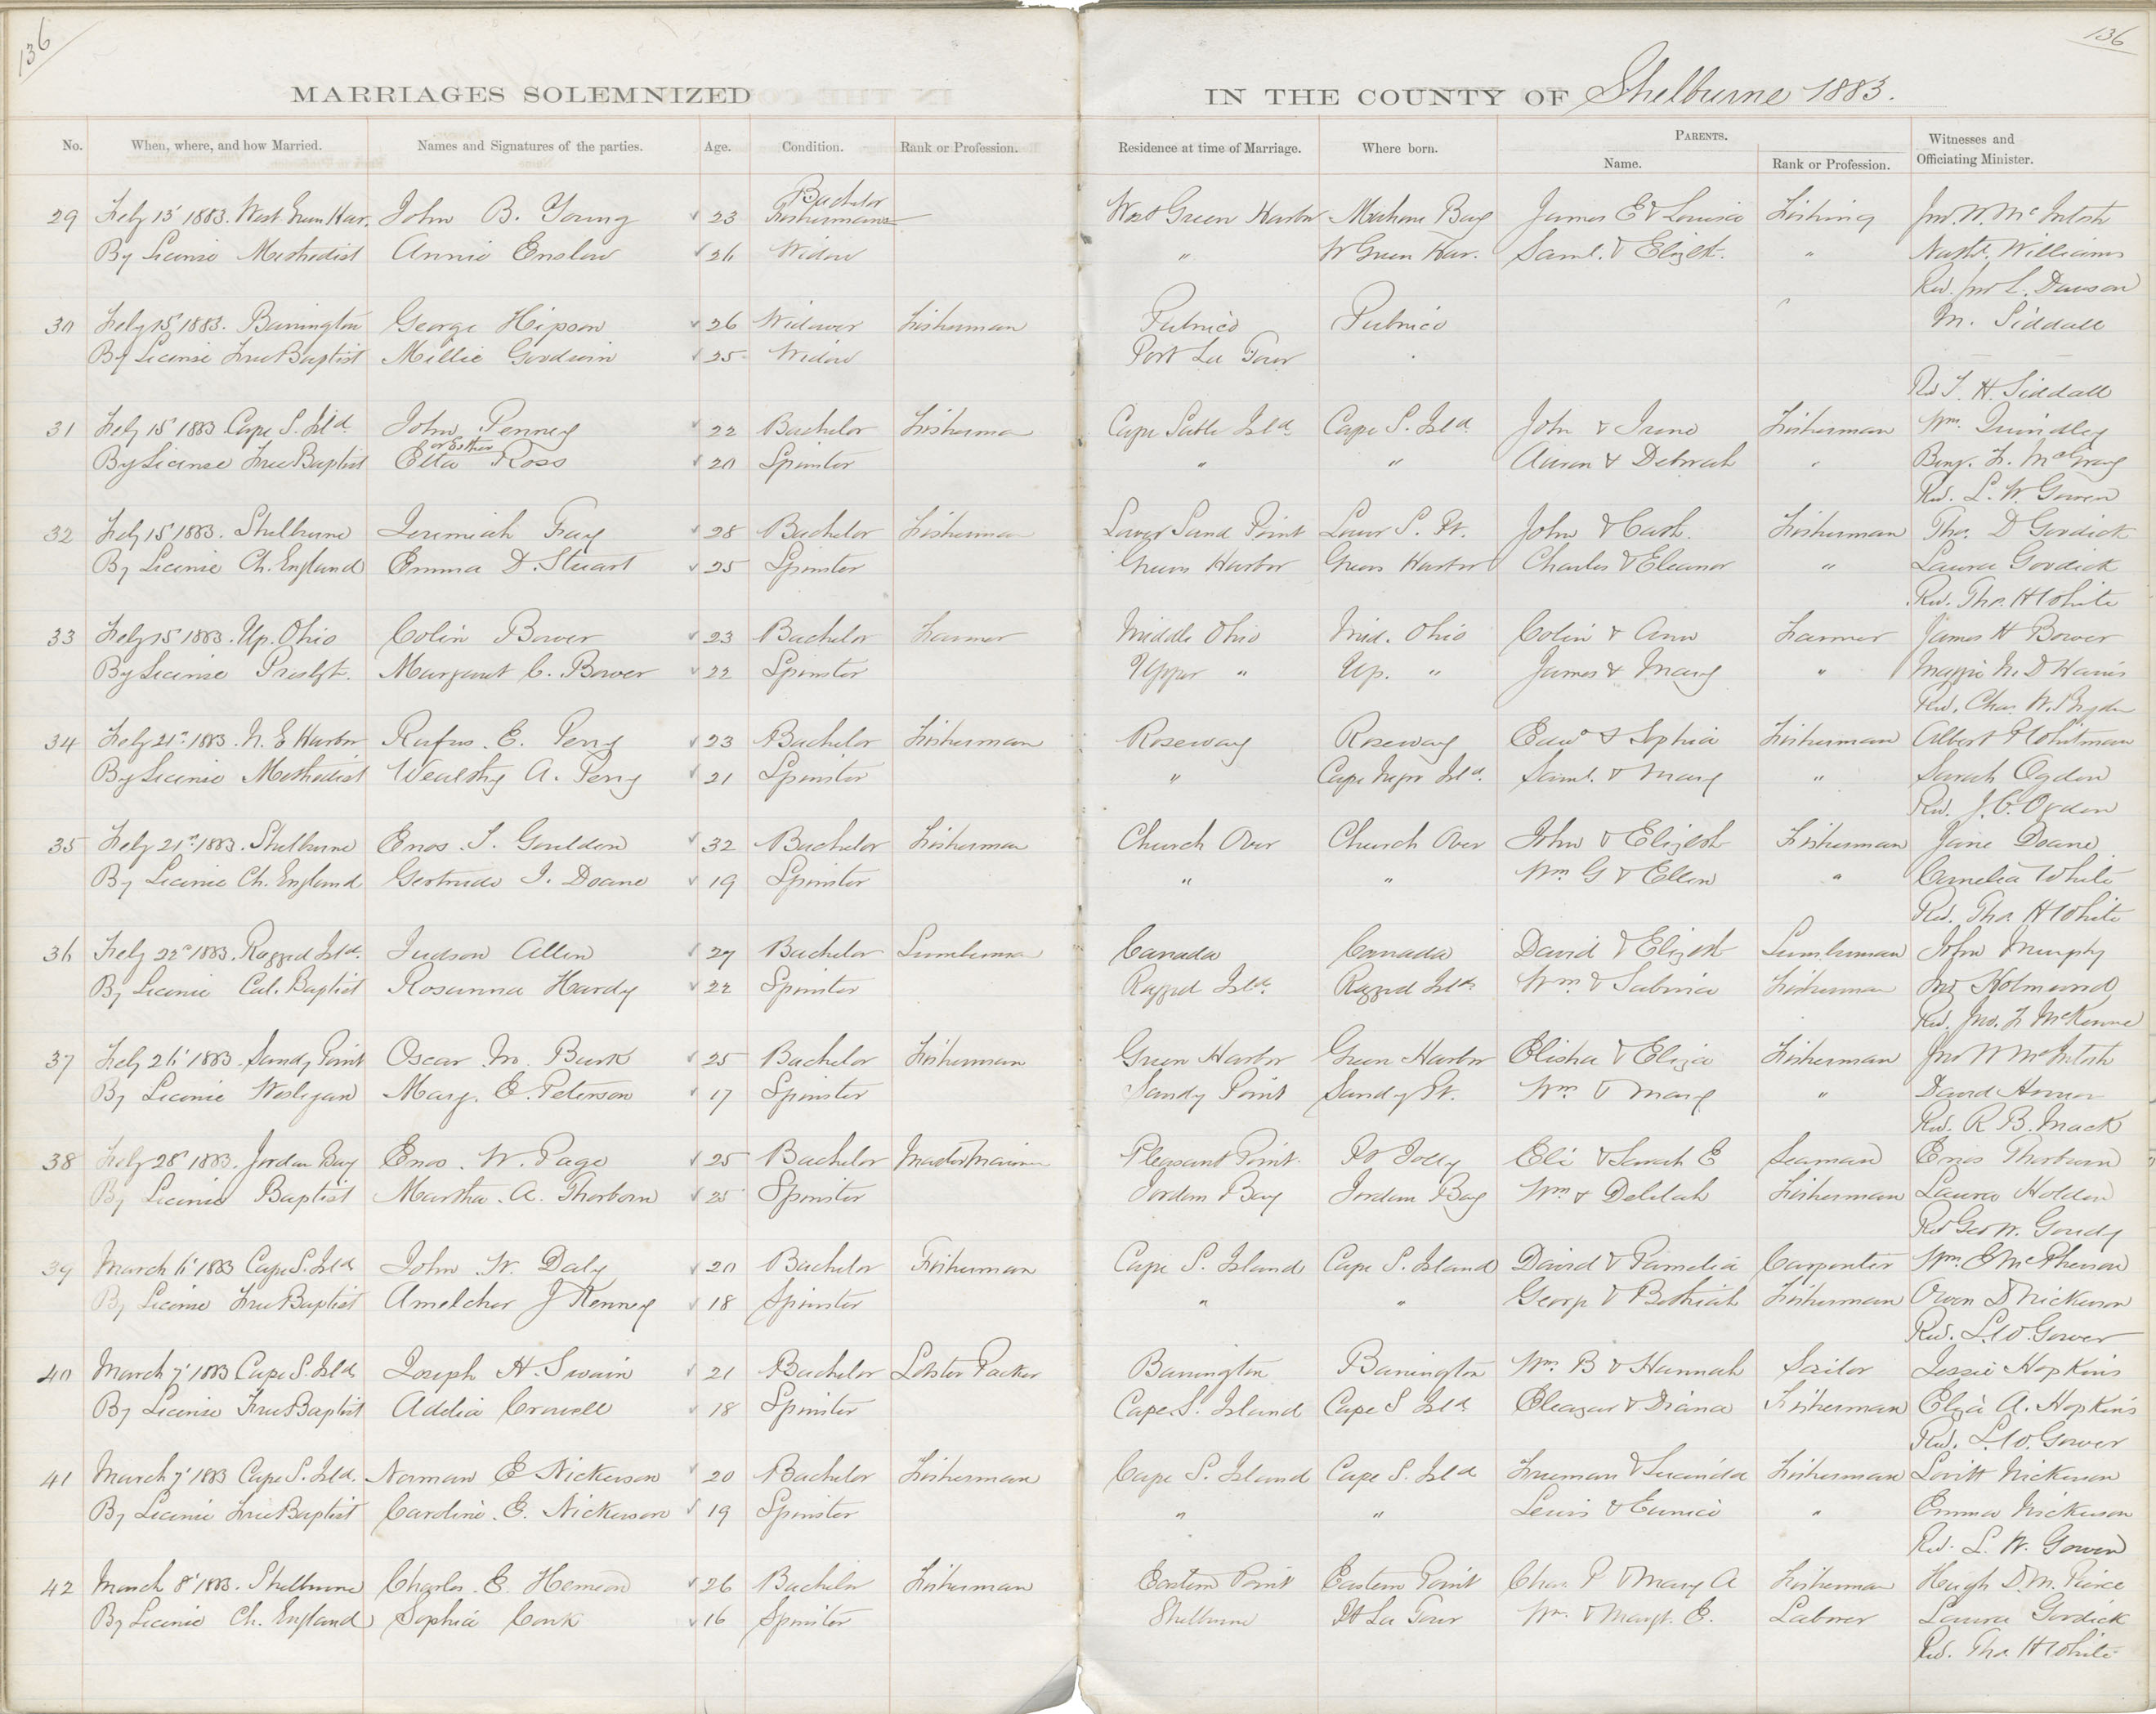 136
136
MARRIAGES SOLEMNIZED IN THE COUNTY OF Shelburne 1883.
No. When, where, and how Married. Names and Signatures of the parties. Age. Condition. Rank or Profession. Residence at time of Marriage. Where born. PARENTS. Name. Rank or Profession. Witnesses and Officiating Minister.
Bachelor
29 Feby 13 1883. West Green Har. John B. Young 23 Fisherman West Green Harbor Mahone Bay James E & Louisa Fishing Jno. W. McIntosh
By License Methodist Annie Enslow 26 Widow " W Green Har. Saml. & Elizbt. " Williams
Rev. Jno L. Dawson
30 Feby 15 1883. Barrington George Hipson 26 Widower Fisherman Pubnico Pubnico M. Siddall
By License Free Baptist Millie Goodwin 25 Widow Port La Tour
Rev T. H. Siddall
31 Feby 15 1883 Cape S. Isld. John Penney 22 Bachelor Fisherman Cape Sable Isld. Cape S. Isld. John & Irene Fisherman Wm. Quindley
or Esther
By License Free Baptist Etta Ross 20 Spinster " " Aaron & Deborah " Benj. F. McGray
Rev. L. W. Gowen
32 Feby 15 1883. Shelburne Jeremiah Fray 28 Bachelor Fisherman Lower Sand Point Lower S. Pt. John & Cath. Fisherman Tho. D Gordick
By License Ch. England Emma D. Stuart 25 Spinster Green Harbor Green Harbor Charles & Eleanor " Laura Gordick
Rev. Tho. H White
33 Feby 15 1883. Up. Ohio Colin Bower 23 Bachelor Farmer Middle Ohio Mid. Ohio Colin & Ann Farmer James H Bower
By License Presbyt. Margaret C. Bower 22 Spinster Upper " Up. " James & Mary " Maggie M. D Harris
Rev. Chas. W. Bryden
34 Feby 21st 1883. N. E Harbor Rufus. E. Perry 23 Bachelor Fisherman Roseway Roseway Edwd & Sophia Fisherman Albert P Whitman
By License Methodist Wealthy A. Perry 21 Spinster " Cape Negro Isld. Saml. & Mary " Sarah Ogden
Rev. J. C. Ogden
35 Feby 21st 1883. Shelburne Enos. S. Goulden 32 Bachelor Fisherman Church Over Church Over John & Elizbth Fisherman Jane Doane
By License Ch. England Gertrude I. Doane 19 Spinster " " Wm G & Ellen " Cornelia White
Rev. Tho. H White
36 Feby 22d 1883. Ragged Isld. Judson Allen 27 Bachelor Lumberman Canada Canada David & Elizbth Lumberman John Murphy
By License Cal. Baptist Rosanna Hardy 22 Spinster Ragged Isld. Ragged Isld. Wm & Sabina Fisherman
Rev. Jno. F McKenna
37 Feby 26 1883. Sandy Point Oscar M. Burk 25 Bachelor Fisherman Green Harbor Green Harbor Elisha & Eliza Fisherman Jno W McIntosh
By License Wesleyan Mary. E. Peterson 17 Spinster Sandy Point Sandy Pt. Wm & Mary " David
Rev. R. B. Mack
38 Feby 28 1883. Jordan Bay Enos. W. Page 25 Bachelor Master Mariner Pleasant Point Pt Jolly Eli & Sarah E Seaman Enos Thorburn
By License Baptist Martha. A. Thorborn 25 Spinster Jordan Bay Jordan Bay Wm & Delilah Fisherman Laura Holden
Rev Geo W. Goudy
39 March 6 1883 Cape S. Isld John W. Daly 20 Bachelor Fisherman Cape S. Island Cape S. Island David & Pamelia Carpenter Wm. E McPherson
By License Free Baptist Amelcher J Kenney 18 Spinster " " George & Bethiah Fisherman Owen D Nickerson
Rev. L. W. Gowen
40 March 7 1883 Cape S. Isld Joseph H. Swain 21 Bachelor Lobster Packer Barrington Barrington Wm. B & Hannah Sailor Jessie Hopkins
By License Free Baptist Addia Crowell 18 Spinster Cape S. Island Cape S Isld. Eleazar & Diana Fisherman Eliza A. Hopkins
Rev. L. W. Gowen
41 March 7 1883 Cape S. Isld. Norman E Nickerson 20 Bachelor Fisherman Cape S. Island Cape S. Isld Freeman & Lucinda Fisherman Lovitt Nickerson
By License Free Baptist Caroline. E. Nickerson 19 Spinster " " Lewis & Eunice " Emma Nickerson
Rev. L. W. Gowen
42 March 8 1883. Shelburne Charles. E. Hemeon 26 Bachelor Fisherman Eastern Point Eastern Point Chas. P & Mary A Fisherman Hugh D. M. Pierce
By License Ch. England Sophia Conk 16 Spinster Shelburne Pt La Tour Wm. & Margt. E. Laborer Laura Gordick
Rev. Tho H White